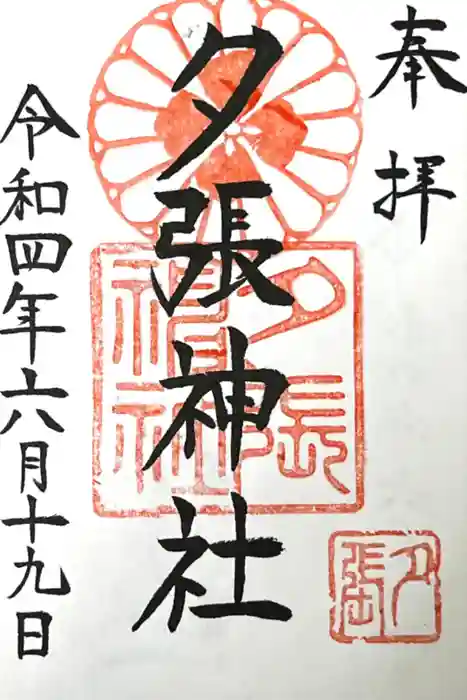 奉拝
夕張神社
令和四年六月十九日
夕張神社